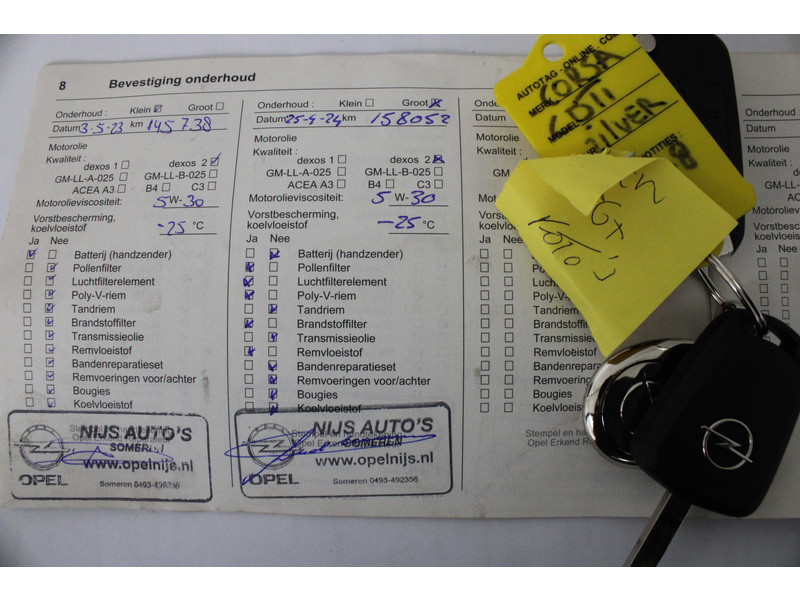 8 Bevestiging onderhoud
Onderhoud : Klein Groot
Datum 3-5-23 km 145738
Motorolie
Kwaliteit :
dexos 1 dexos 2
GM-LL-A-025 GM-LL-B-025
ACEA A3 B4 C3
Motorolieviscositeit: 5W-30
Vorstbescherming,
koelvloeistof -25 °C
Ja Nee
Batterij (handzender)
Pollenfilter
Luchtfilterelement
Poly-V-riem
Tandriem
Brandstoffilter
Transmissieolie
Remvloeistof
Bandenreparatieset
Remvoeringen voor/achter
Bougies
Koelvloeistof
NIJS AUTO'S
SOMEREN
www.opelnijs.nl
OPEL Someren 0493-492356
Onderhoud : Klein Groot
Datum 25-4-24 km 158052
Motorolie
Kwaliteit :
dexos 1 dexos 2
GM-LL-A-025 GM-LL-B-025
ACEA A3 B4 C3
Motorolieviscositeit: 5W-30
Vorstbescherming,
koelvloeistof -25 °C
Ja Nee
Batterij (handzender)
Pollenfilter
Luchtfilterelement
Poly-V-riem
Tandriem
Brandstoffilter
Transmissieolie
Remvloeistof
Bandenreparatieset
Remvoeringen voor/achter
Bougies
Koelvloeistof
NIJS AUTO'S
SOMEREN
www.opelnijs.nl
OPEL Someren 0493-492356
Datum
Motorolie
Kwaliteit :
GM-LL-A
ACEA
Motorolievis
Vorstbesche
koelvloeistof
Ja Nee
Batte
Pollen
Luchtf
Poly-V
Tandri
Brands
Transm
Remvlo
Bandenr
Remvoering
Bougies
Koelvloeist
Stempel en han
Opel Erkend R
AUTOTAG - ONLINE . CO
MERK CORSA
MODEL CDTI
Silver
Onderhoud :
Datum
Motorolie
Kwaliteit :
GM-LL
Motorolie
Vorstbe
koelvloeis
Ja Nee